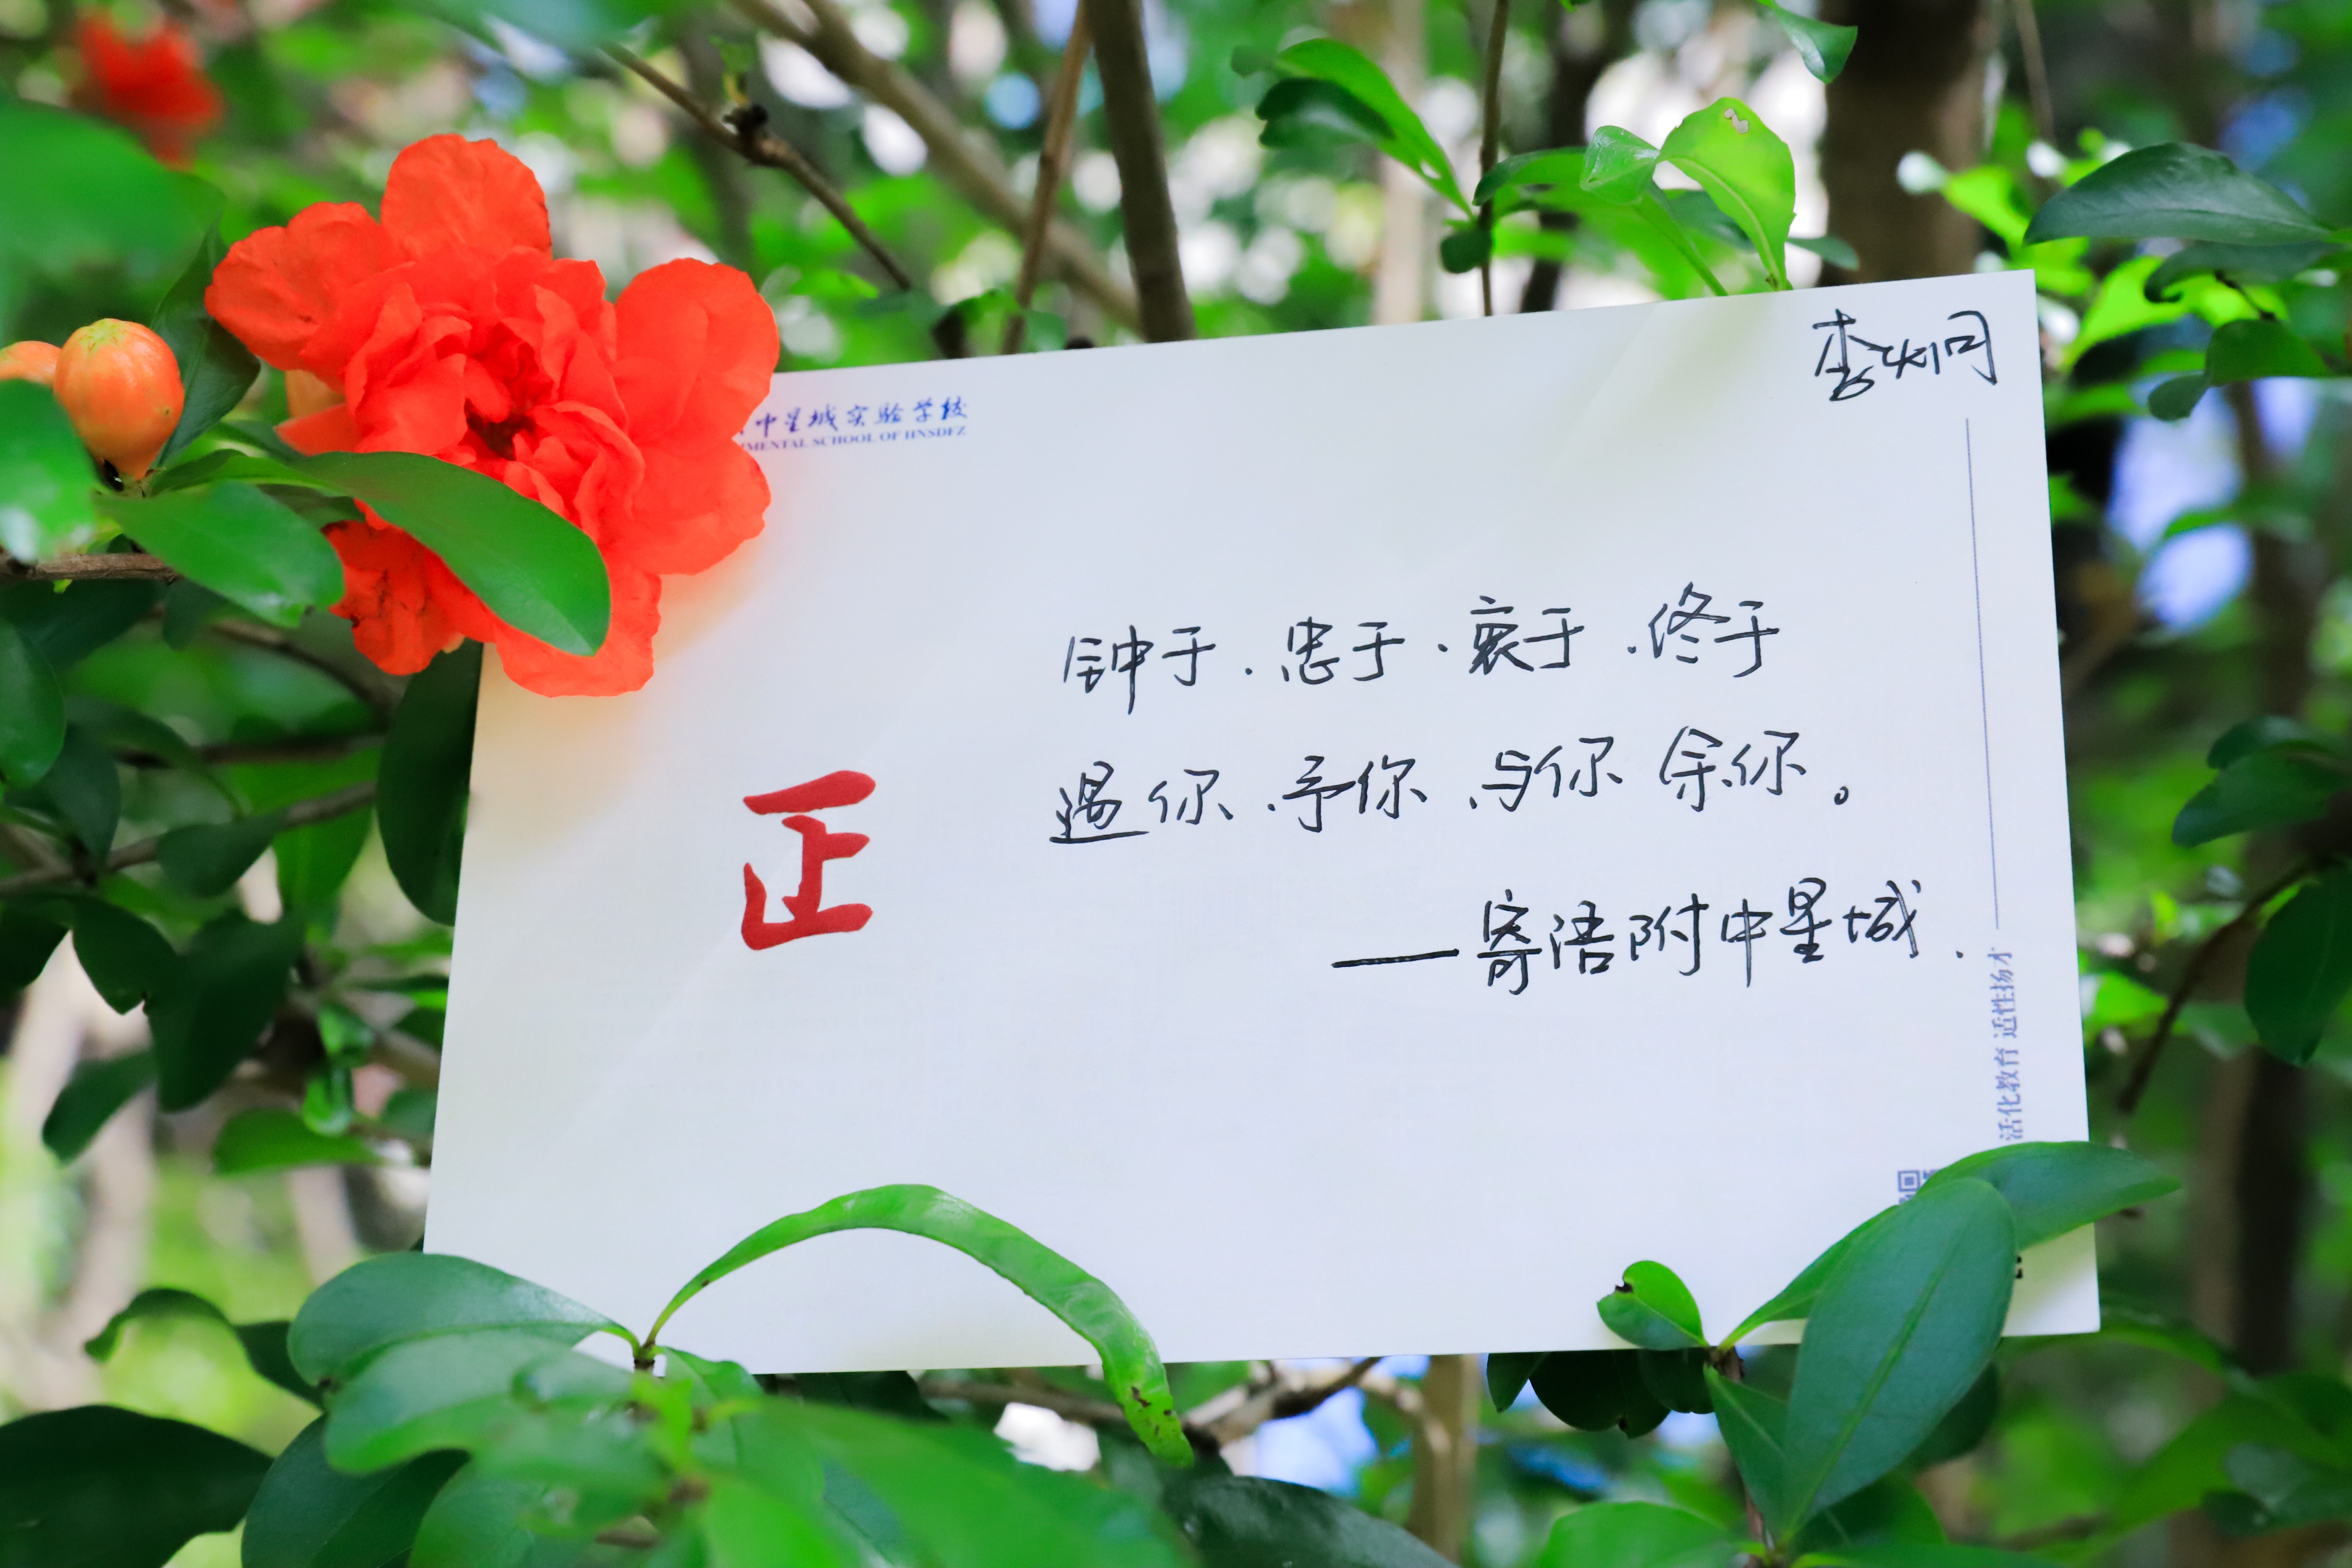 李炯
中星城实验学校
MENTAL SCHOOL OF HNSDFZ
钟于.忠于.衷于.终于
遇你.予你.与你 余你。
正
——寄语附中星城.
活化教育 适性扬才